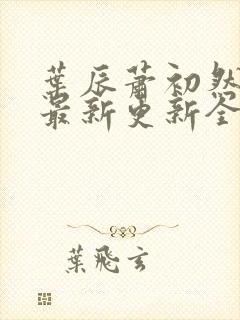 葉辰蕭初然
最新更新全
葉飛玄